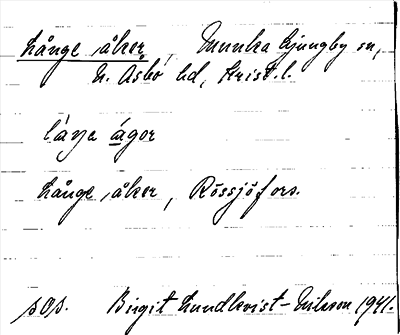 Långe åker, Munka Ljungby sn,
N. Åsbo hd, Krist. l.
låŋa ågor
Långe åker, Rössjöfors.
sOs. Birgit Lundkvist-Nilsson 1941.